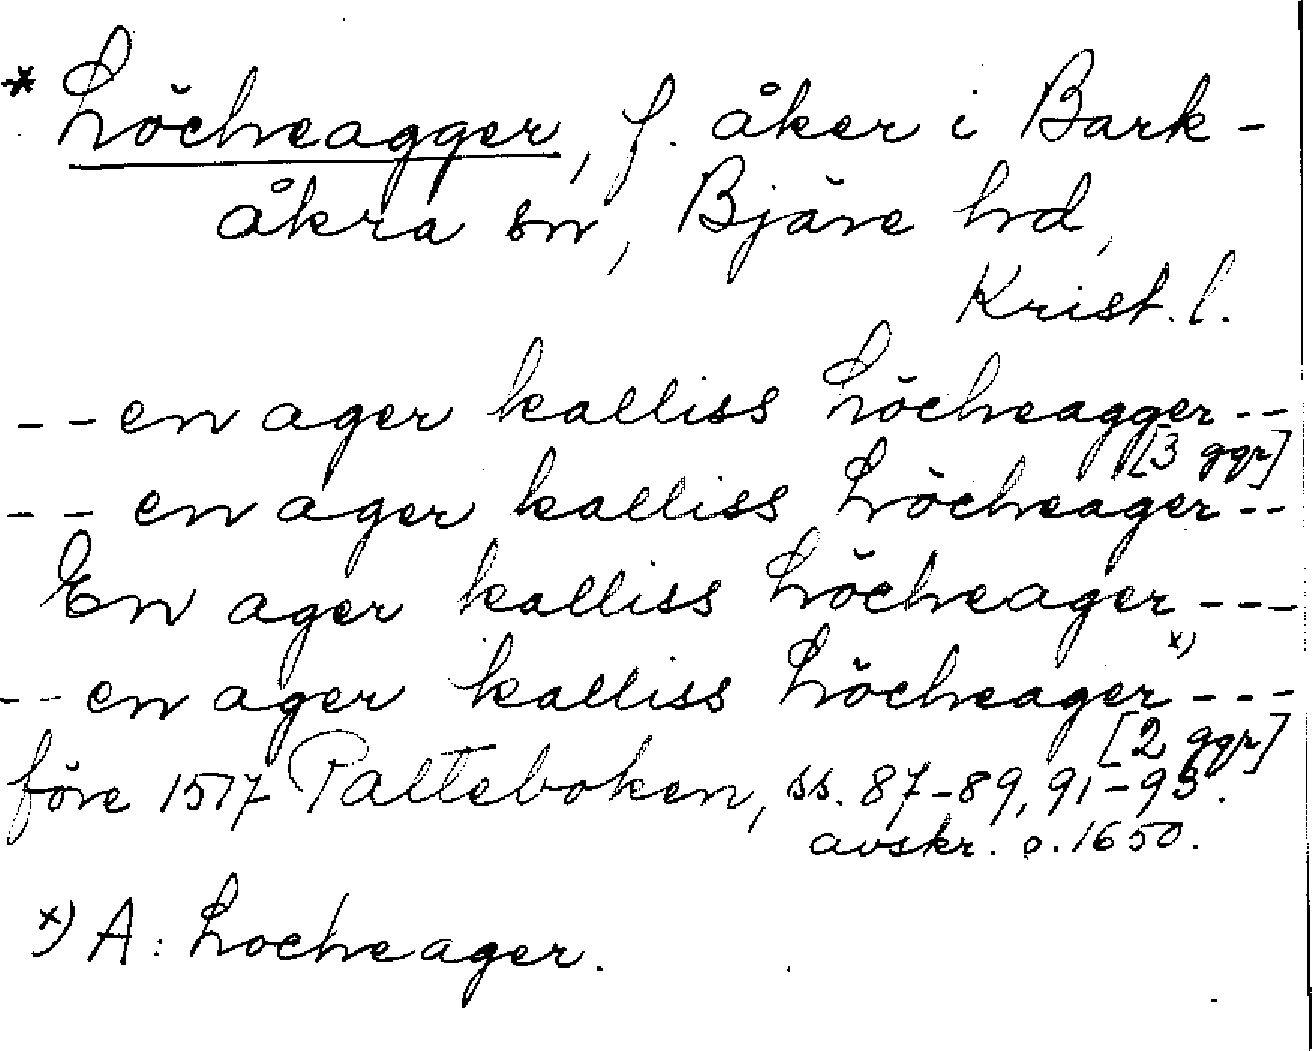 * Löcheagger, f. åker i Bark-
åkra sn, Bjäre hd,
Krist. l.
-- en ager kalliss Löcheagger --
[3 ggr]
-- en ager kalliss Löcheager --
En ager kalliss Löcheager ---
-- en ager kalliss Löcheager x) ---
[2 ggr]
före 1517 Palteboken, ss. 87-89, 91-93.
avskr. o. 1650.
x) A: Locheager.